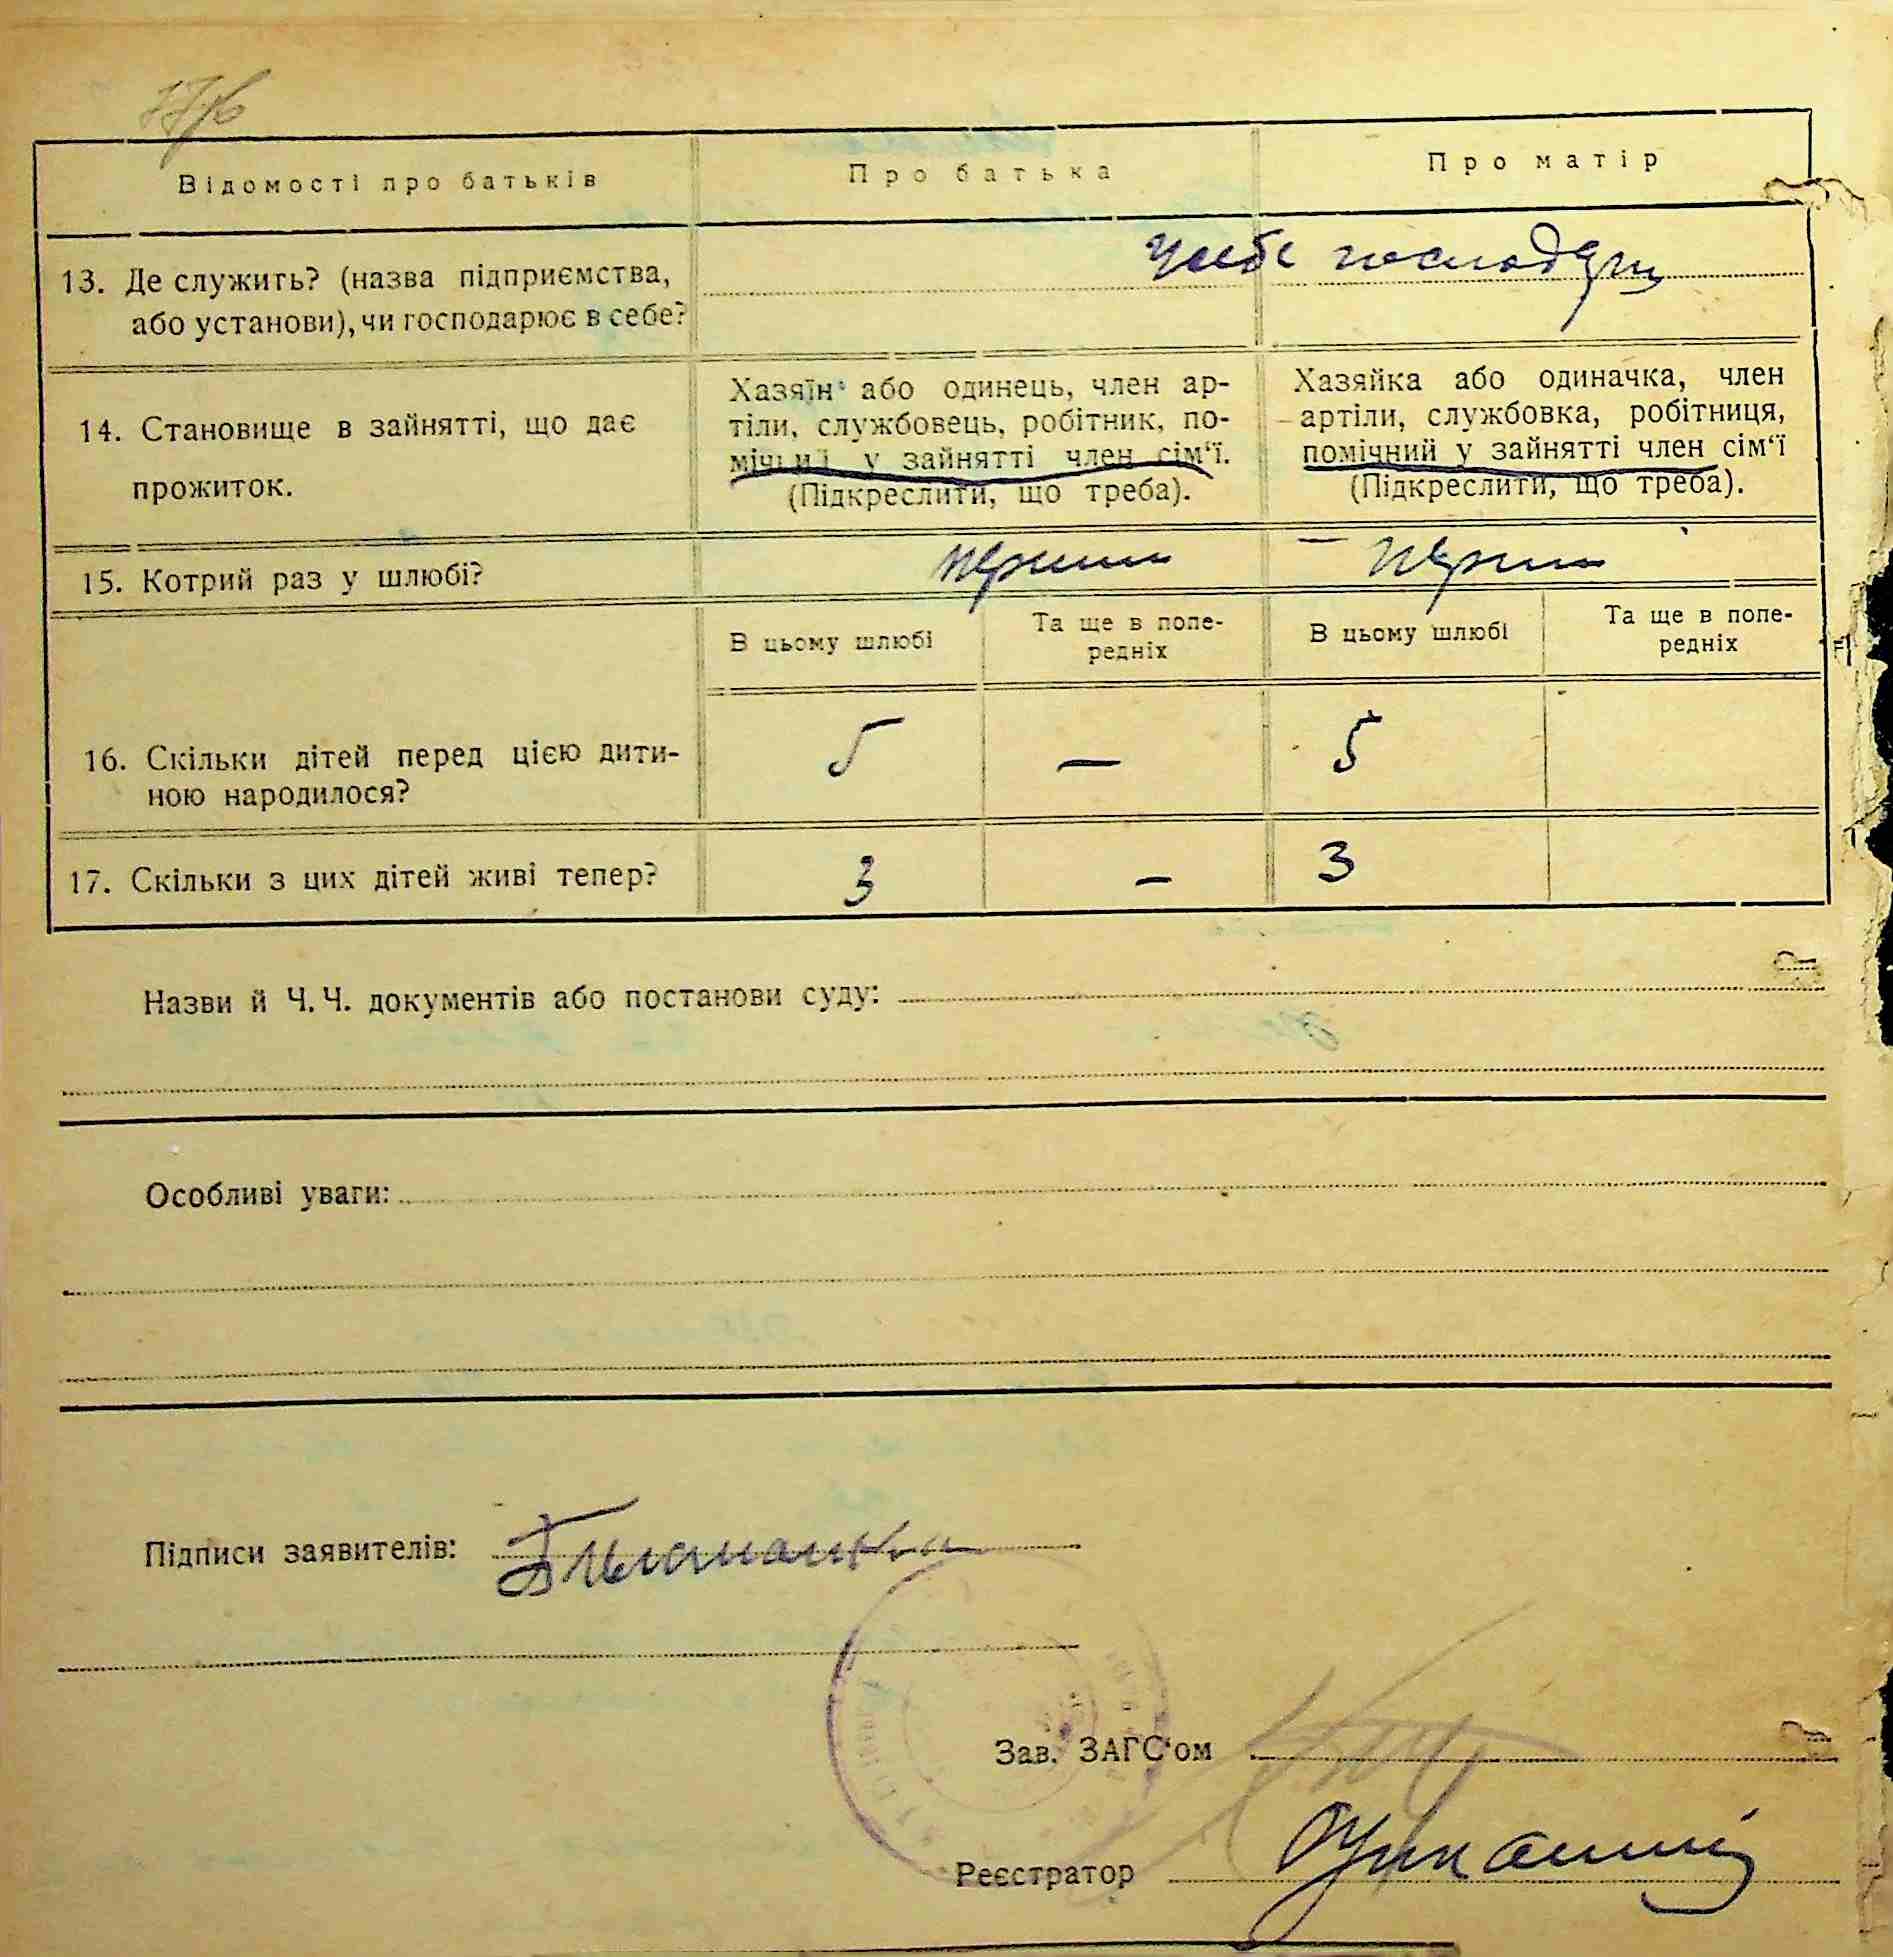 Відомості про батьків Про батька Про матір
13. Де служить? (назва підприємства, або установи), чи господарює в себе?
у себе господар
14. Становище в зайнятті, що дає прожиток.
Хазяїн або одинець, член ар-
тіли, службовець, робітник, по-
мічний у зайнятті член сім'ї.
(Підкреслити, що треба).
Хазяйка або одиначка, член
артіли, службовка, робітниця,
помічний у зайнятті член сім'ї
(Підкреслити, що треба).
15. Котрий раз у шлюбі? перший перший
В цьому шлюбі Та ще в попе-
редніх В цьому шлюбі Та ще в попе-
редніх
16. Скільки дітей перед цією дити-
ною народилося? 5 — 5
17. Скільки з цих дітей живі тепер? 3 — 3
Назви й Ч.Ч. документів або постанови суду:
Особливі уваги:
Підписи заявителів:
Зав. ЗАГС'ом
Реєстратор